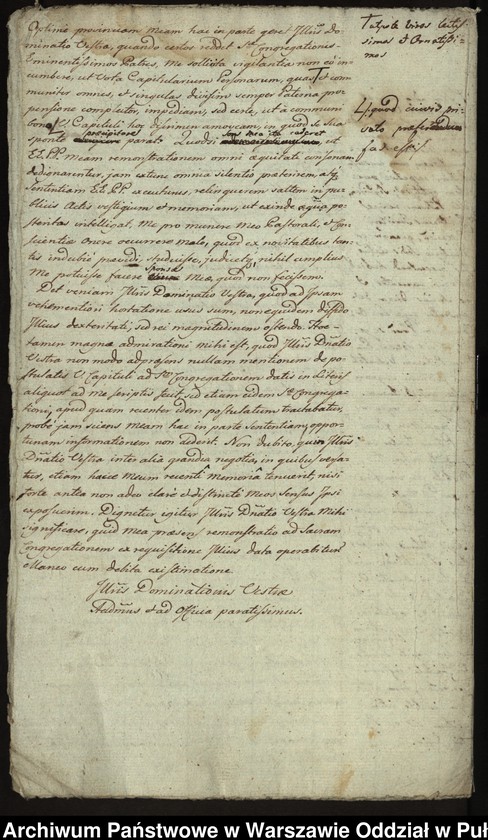 Optime provinciam meam hac in parte geret Illris Do-
minatio Vestra, quando certos reddet S. Congregationis
Eminentissimos Patres, me sollicita vigilantia non eo in-
cumbere, ut vota Capitularium Personarum, quas com
muniter omnes, et singulas divisim semper Paterna pro-
pensione complector, impediam, sed certe, ut a communi
bono Capituli hoc discrimen amoveam, in quod se sua
sponte praecipitare parat. Quodsi
EE. PP. meam remonstrationem omni aequitati consonam
dedignarentur, jam ex tunc omnia silentio praeterirem, atq
Sententiam EE. PP. executurus, relinquerem saltem in pu-
blicis Actis vestigium et memoriam, ut exinde aequa po-
steritas intelligat, Me pro munere meo Pastorali, et Con-
scientiae onere occurrere malo, quod ex novitatibus tan-
tis indubie praevidi, studuisse, judicetq nihil amplius
Me potuisse facere Sponsae Meae, quod non fecissem.
Det veniam Illris Dominatio Vestra, quod ad Ipsam
vehementiori hortatione usus sum, non equidem diffido
Illius dexteritati, sed rei magnitudinem ostendo. Hoc
tamen magnae admirationi mihi est, quod Illris Dnatio
Vestra non modo ad praesens nullam mentionem de po-
stulatis V. Capituli ad S. Congregationem datis in literis
aliquot ad me scriptis fecit, sed etiam eidem S. Congrega-
tioni, apud quam recenter idem postulatum tractabatur,
probe jam sciens meam hac in parte Sententiam, oppor-
tunam informationem non dederit. Non dubito, quin Illris
Dnatio Vestra inter alia grandia negotia, in quibus versa-
tur, etiam hocce meum recenti memoria tenuerit, nisi
forte antea non adeo clare et distincte meos Sensus Ipsi
exposuerim. Dignetur igitur Illris Dnatio Vestra Mihi
significare, quid mea praesens remonstratio ad Sacram
Congregationem ex requisitione Illius data operabitur
Maneo cum debita existimatione
Illris Dominationis Vestrae
Addmus et ad Officia paratissimus.
Tales viros
simos et Ornatissi-
mos
quod cuivis pri-
vato praeferendum
fas est
Archiwum Państwowe w Warszawie Oddział w Puł